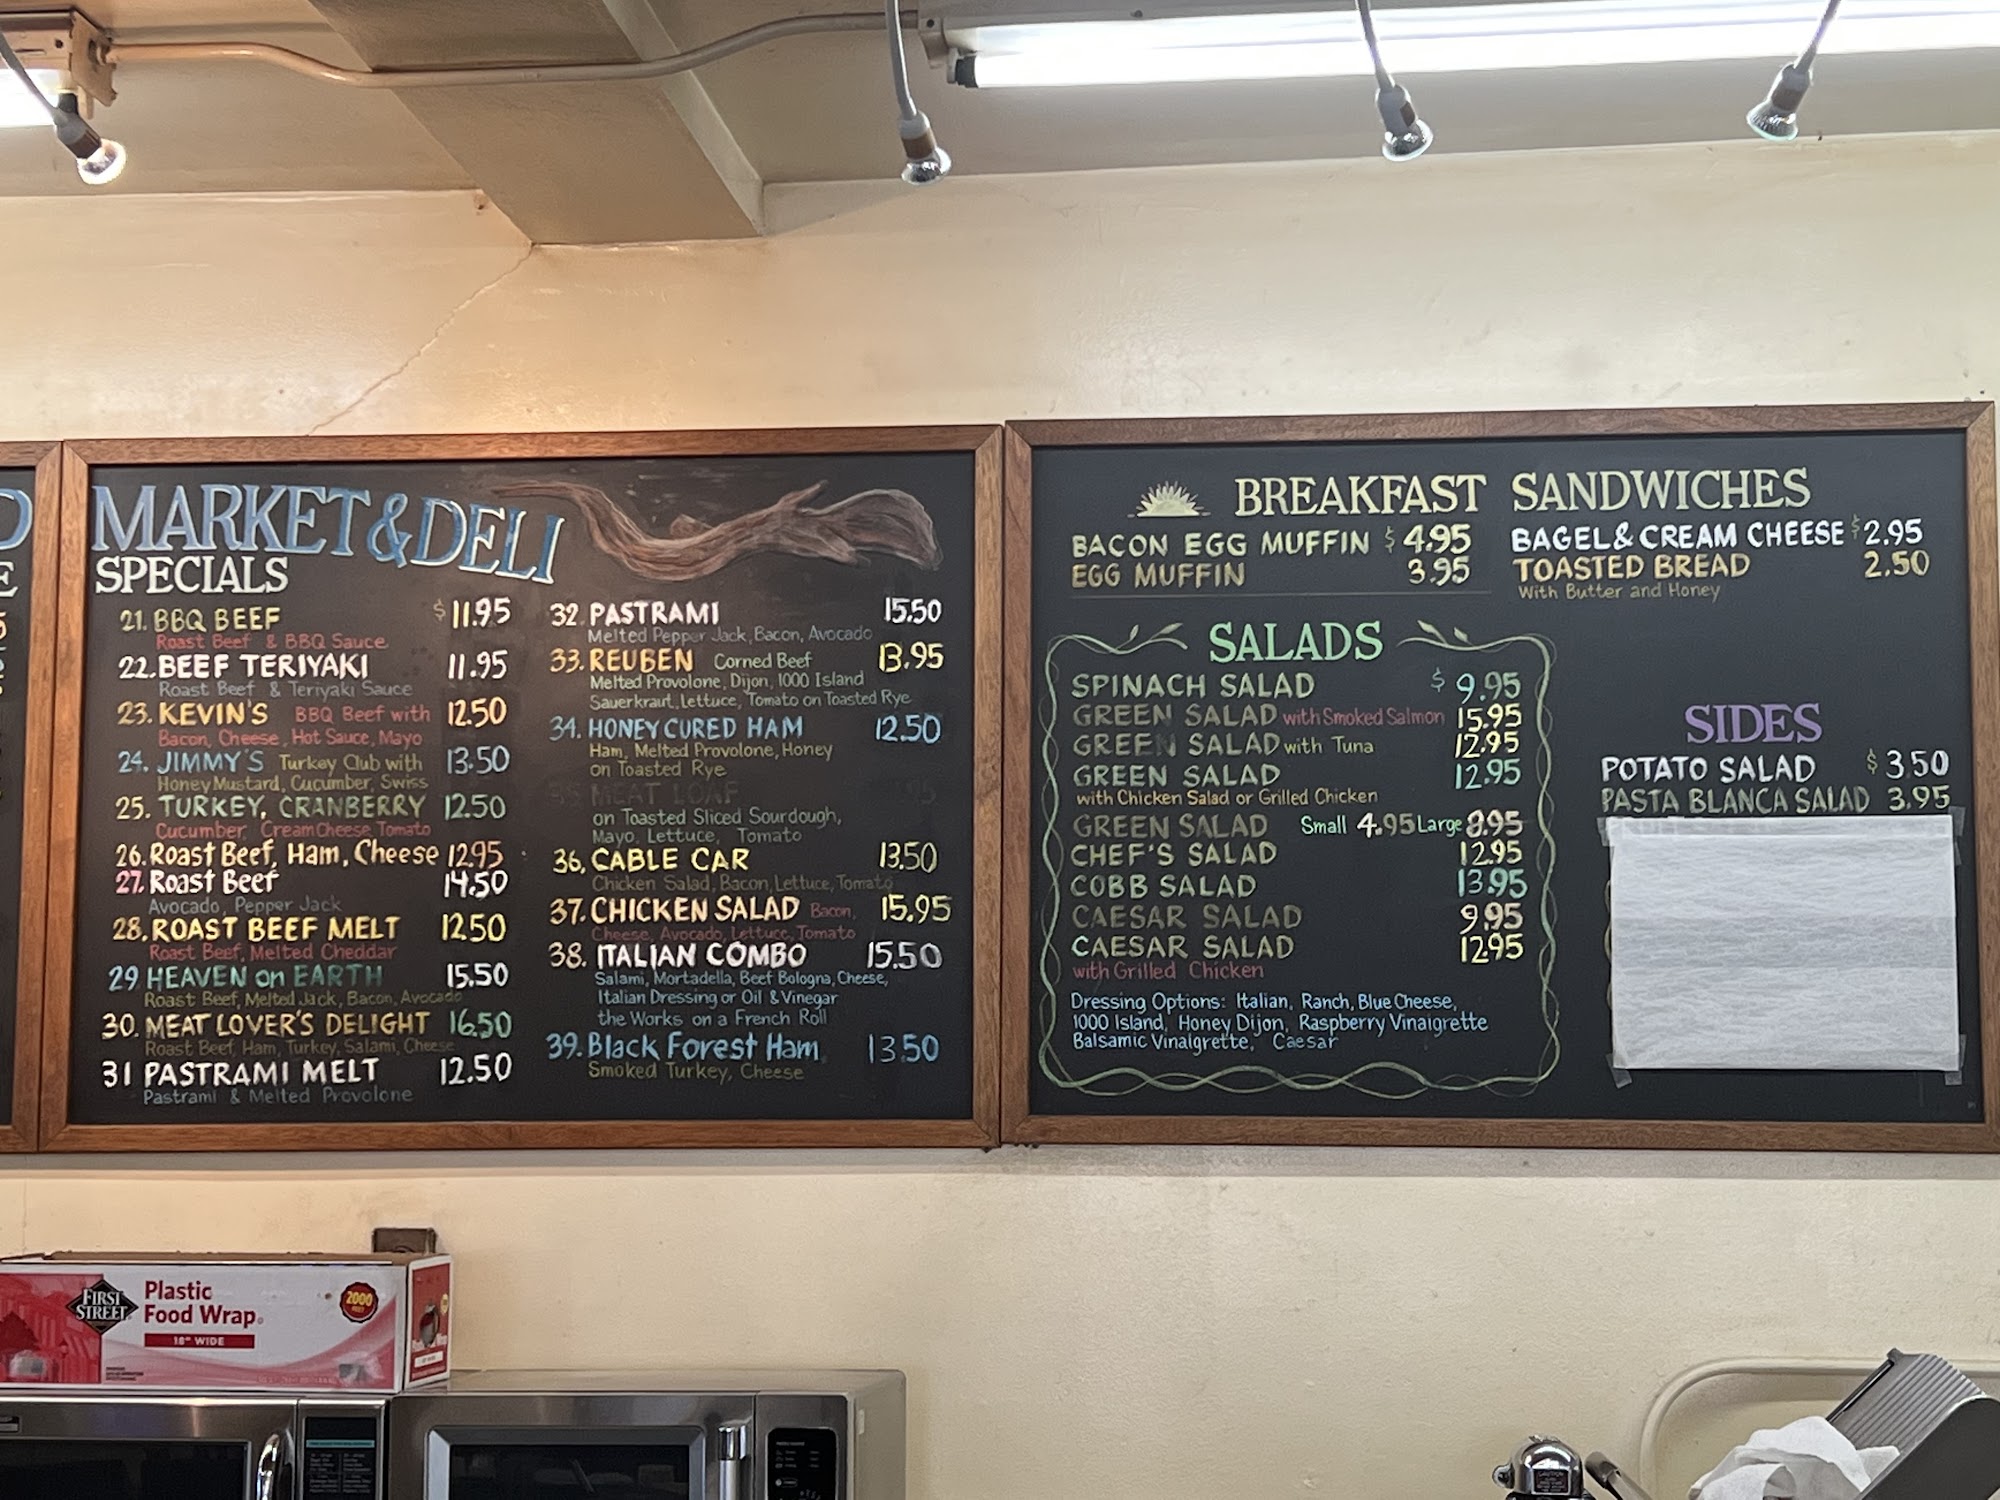 MARKET & DELI
SPECIALS
21. BBQ BEEF $11.95
Roast Beef & BBQ Sauce
22. BEEF TERIYAKI 11.95
Roast Beef & Teriyaki Sauce
23. KEVIN'S BBQ Beef with 12.50
Bacon, Cheese, Hot Sauce, Mayo
24. JIMMY'S Turkey Club with 13.50
Honey Mustard, Cucumber, Swiss
25. TURKEY, CRANBERRY 12.50
Cucumber, Cream Cheese Tomato
26. Roast Beef, Ham, Cheese 12.95
27. Roast Beef 14.50
Avocado, Pepper Jack
28. ROAST BEEF MELT 12.50
Roast Beef, Melted Cheddar
29 HEAVEN on EARTH 15.50
Roast Beef, Melted Jack, Bacon, Avocado
30. MEAT LOVER'S DELIGHT 16.50
Roast Beef, Ham, Turkey, Salami, Cheese
31 PASTRAMI MELT 12.50
Pastrami & Melted Provolone
32. PASTRAMI 15.50
Melted Pepper Jack, Bacon, Avocado
33. REUBEN Corned Beef 13.95
Melted Provolone, Dijon, 1000 Island
Sauerkraut, Lettuce, Tomato on Toasted Rye
34. HONEY CURED HAM 12.50
Ham, Melted Provolone, Honey
on Toasted Rye
35 MEAT LOAF
on Toasted Sliced Sourdough,
Mayo, Lettuce, Tomato
36. CABLE CAR 13.50
Chicken Salad, Bacon, Lettuce, Tomato
37. CHICKEN SALAD Bacon, 15.95
Cheese, Avocado, Lettuce, Tomato
38. ITALIAN COMBO 15.50
Salami, Mortadella, Beef Bologna, Cheese,
Italian Dressing or Oil & Vinegar
the Works on a French Roll
39. Black Forest Ham 13.50
Smoked Turkey, Cheese
BREAKFAST SANDWICHES
BACON EGG MUFFIN $4.95
EGG MUFFIN 3.95
BAGEL & CREAM CHEESE $2.95
TOASTED BREAD 2.50
With Butter and Honey
SALADS
SPINACH SALAD $9.95
GREEN SALAD with Smoked Salmon 15.95
GREEN SALAD with Tuna 12.95
GREEN SALAD 12.95
with Chicken Salad or Grilled Chicken
GREEN SALAD Small 4.95 Large 8.95
CHEF'S SALAD 12.95
COBB SALAD 13.95
CAESAR SALAD 9.95
CAESAR SALAD 12.95
with Grilled Chicken
Dressing Options: Italian, Ranch, Blue Cheese,
1000 Island, Honey Dijon, Raspberry Vinaigrette
Balsamic Vinaigrette, Caesar
SIDES
POTATO SALAD $3.50
PASTA BLANCA SALAD 3.95
FIRST STREET
Plastic
Food Wrap
18" WIDE
2000